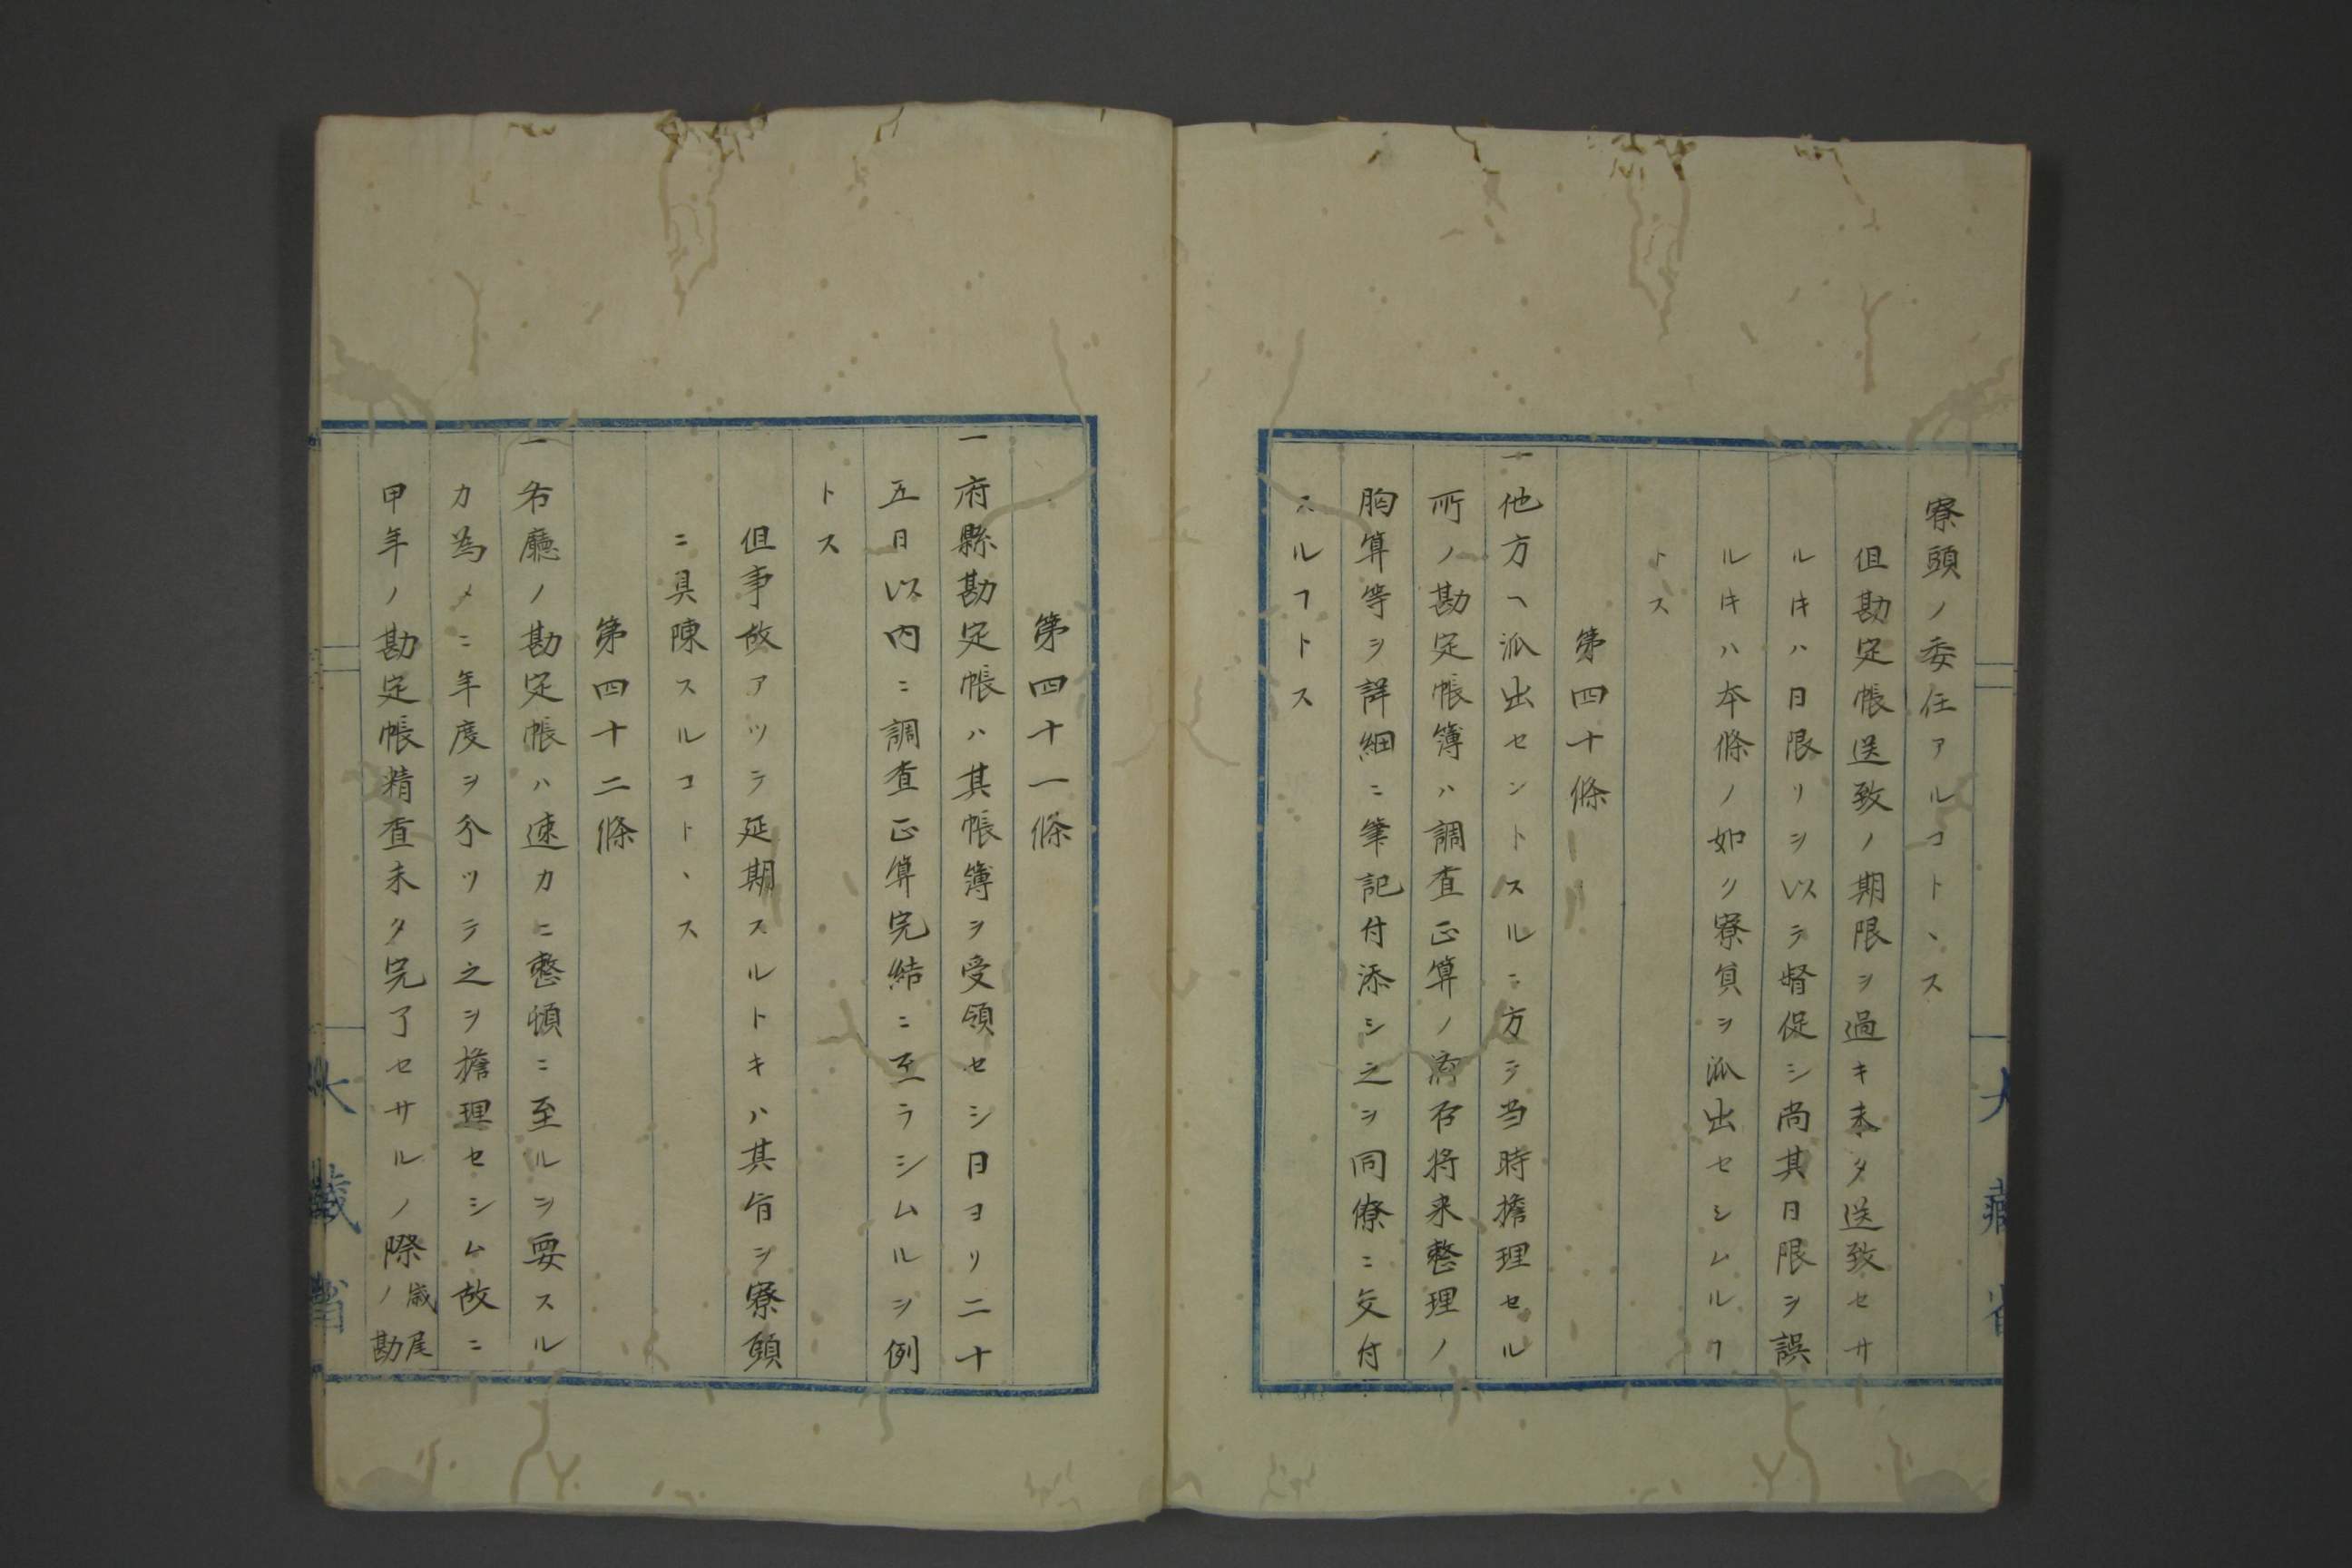 寮頭ノ委任アルコトヽス
但勘定帳送致ノ期限ヲ過キ未タ送致セサ
ルキハ日限リヲ以テ督促シ尚其日限ヲ誤
ルキハ本條ノ如ク寮員ヲ派出セシムルヿ
トス
第四十條
一他方ヘ派出セントスルニ方テ当時擔理セル
所ノ勘定帳簿ハ調査正算ノ済否将来整理ノ
胸算等ヲ詳細ニ筆記付添シ之ヲ同僚ニ交付
スルヿトス
大藏省
第四十一條
一府縣勘定帳ハ其帳簿ヲ受領セシ日ヨリ二十
五日以内ニ調査正算完結ニ至ラシムルヲ例
トス
但事故アツテ延期スルトキハ其旨ヲ寮頭
ニ具陳スルコトヽス
第四十二條
一各廳ノ勘定帳ハ速カニ整頓ニ至ルヲ要スル
カ為メニ年度ヲ分ツテ之ヲ擔理セシム故ニ
甲年ノ勘定帳精査未タ完了セサルノ際歳尾
ノ勘
大藏省